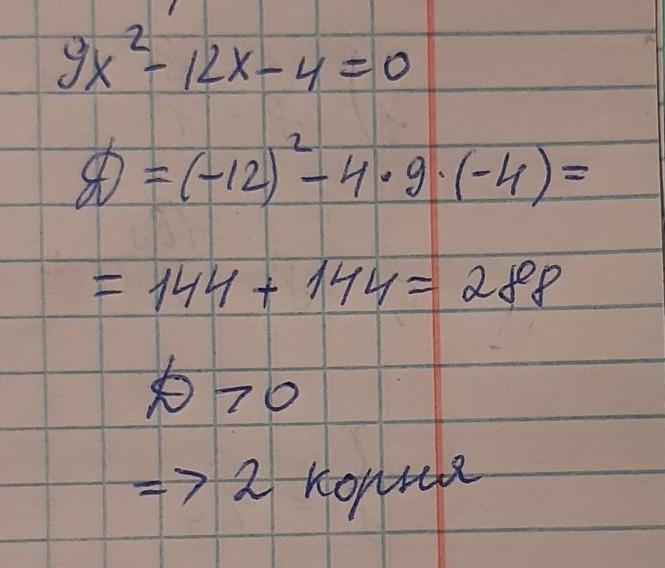 9x² - 12x - 4 = 0
D = (-12)² - 4 · 9 · (-4) =
= 144 + 144 = 288
D > 0
=> 2 корня